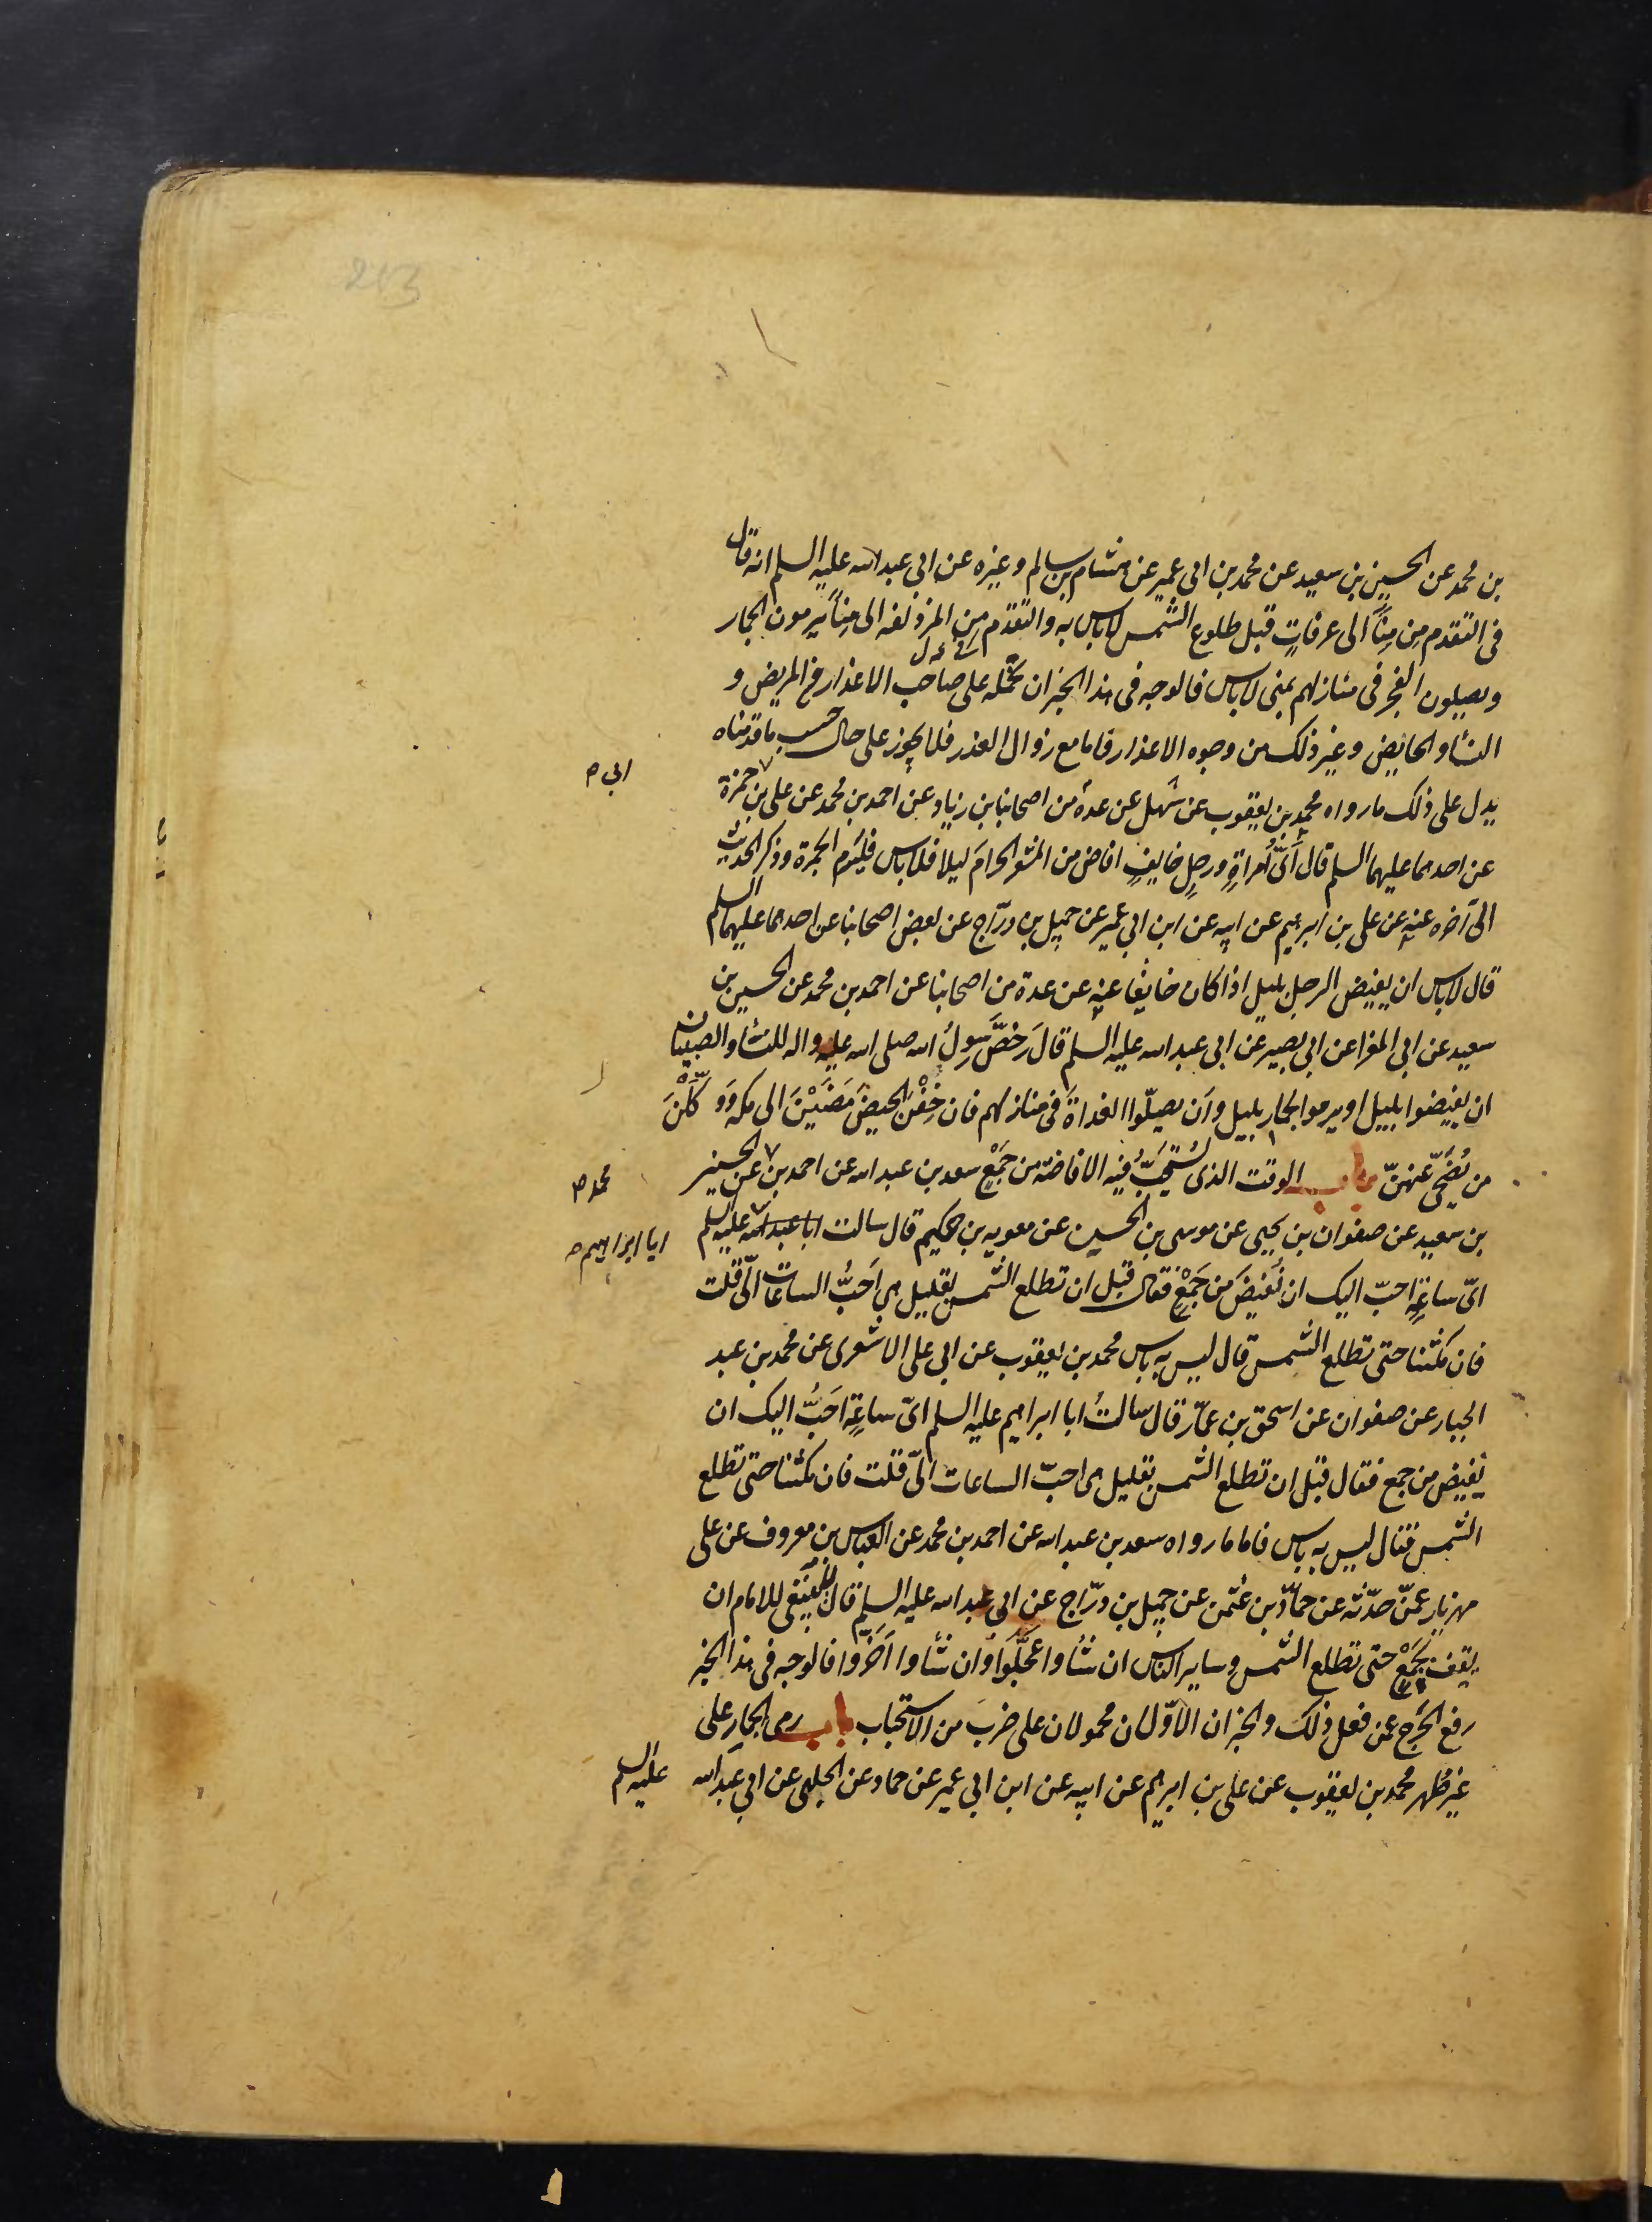 213
بن محمد عن الحسين بن سعيد عن محمد بن ابى عمير عن هشام بن سالم وغيره عن ابي عبد الله عليه السلم انه قال
فى التقدم مِن مِنًا الى عرفاتٍ قبل طلوع الشمس لاباس به والتقدم مِن المزدلفه الى مِنًا يرمون الجمار
ويصلون الفجر فى منازلهم بمنى لاباس فالوجه فى هذا الخبر ان نحمله على صاحب الاعذار من المريض و
النساء والحايض وغير ذلك من وجوه الاعذار فاما مع زوال العذر فلا يجوز على حال حسب ما قدمناه
يدل على ذلك ما رواه محمد بن يعقوب عن سهل عن عدة من اصحابنا بن زياد عن احمد بن محمد عن على بن حمزة
ابى ص
عن احدهما عليهما السلم قال اَىُّ اْمراةٍ ورجلٍ خايفٍ افاض من المشعر الحرام ليلا فلاباس فليَرم الجمرة وذكر الحديث
الى آخره عنه عن على بن ابرهيم عن ابيه عن ابن ابي عمير عن جميل بن درّاج عن بعض اصحابنا عن احدهما عليهما السلم
قال لاباس ان يفيض الرجل بليل اذا كان خايفا عنه عن عدة من اصحابنا عن احمد بن محمد عن الحسين بن
سعيد عن ابي المغرا عن ابي بصير عن ابى عبد الله عليه السلم قال رَخّصَ رَسولُ الله صلى الله عليه واله للنساء والصبيان
ان يفيضوا بليل او يرموا الجمار بليل واَن يصلّوا الغداةَ فى منازلهم فان خِفْنَ الحيضَ مَضَيْنَ الى مكه وَوَكّلْنَ
من يُضَحّى عنهنّ باب الوقت الذى يُستَحَبُّ فيه الافاضة من جَمْعٍ سعد بن عبد الله عن احمد بن عن الحسين
محمد ص
بن سعيد عن صفوان بن يحيى عن موسى بن الحسين عن معويه بن حكيم قال سالت ابا عبد الله عليه السلم
ابا ابراهيم ص
اىّ ساعةٍ احبّ اليك ان نُفيضَ من جَمْعٍ فقال قبل ان تطلع الشمس بقليل هى اَحَبُّ الساعات الىّ قلت
فان مكثنا حتى تطلع الشمس قال ليس به باس محمد بن يعقوب عن ابي على الاشعرى عن محمد بن عبد
الجبار عن صفوان عن اسحق بن عمّار قال سالتُ ابا ابراهيم عليه السلم اىّ ساعةٍ اَحَبُّ اليك ان
نفيض من جمع فقال قبل ان تطلع الشمس بقليل هى احبّ الساعات الىّ قلت فان مكثنا حتى تطلع
الشمس فقال ليس به باس فاما ما رواه سعد بن عبد الله عن احمد بن محمد عن العباس بن معروف عن على
مهزيار عمّن حدّثه عن حمّاد بن عثمن عن جميل بن درّاج عن ابى عبد الله عليه السلم قال ينبغى للامام ان
يقف بجَمْعٍ حتى تطلع الشمس وساير الناس ان شاوا عَجّلَوا وان شاوا اَخّروا فالوجه فى هذا الخبر
رفع الحرَج عمن فعل ذلك والخبران الاوّلان محمولان على ضرب من الاستحباب باب رمى الجمار على
غير طهر محمد بن يعقوب عن على بن ابرهيم عن ابيه عن ابن ابي عمير عن حماد عن الحلبى عن ابي عبد الله عليه السلم